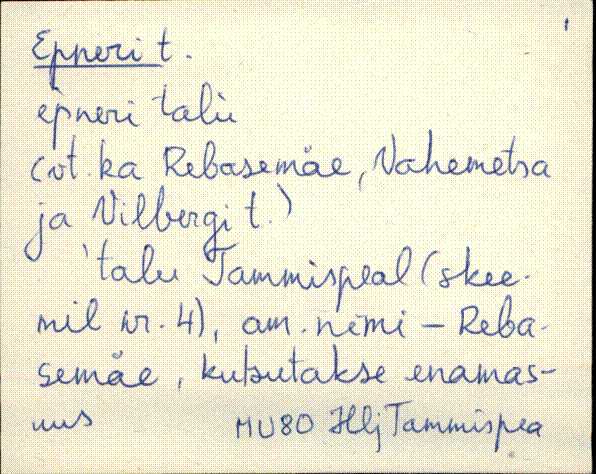 Epneri t.
èpneri talu
(vt. ka Rebasemäe, Vahemetsa
ja Vilbergi t.)
'talu Tammispeal (skee-
mil nr. 4), am. nimi – Reba-
semäe, kutsutakse enamas-
uus MU80 Hlj Tammispea